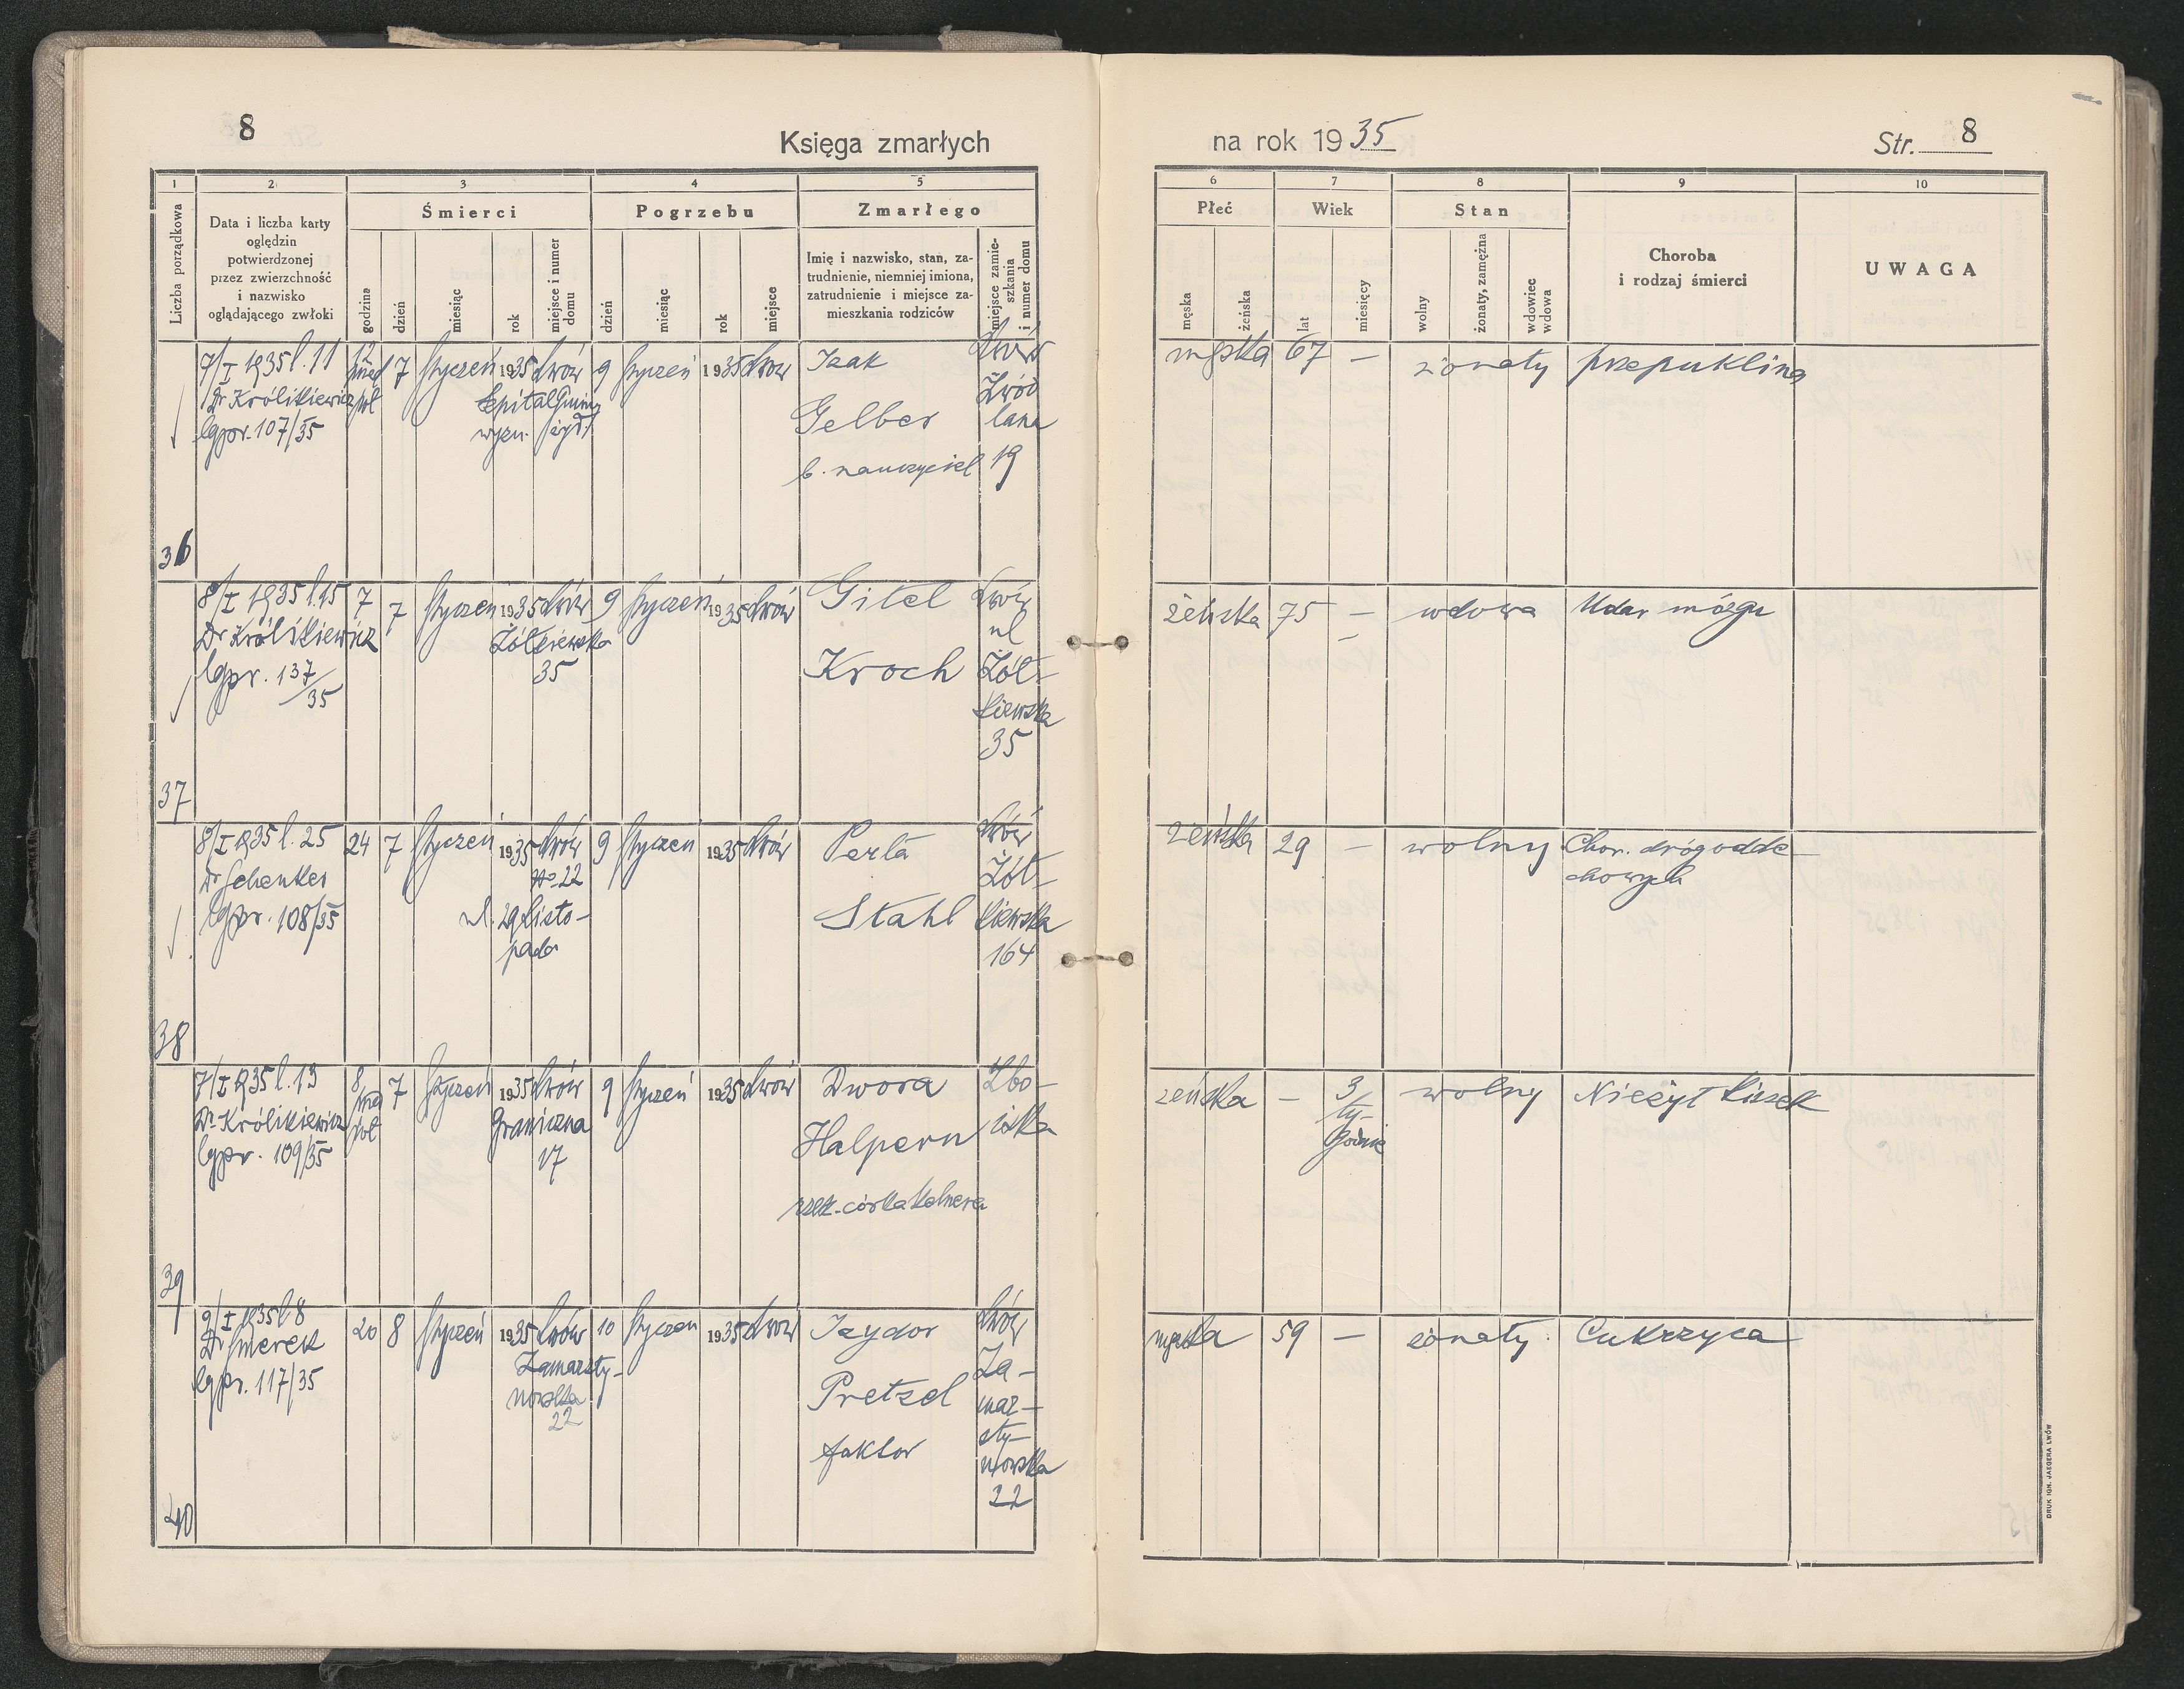 8
Księga zmarłych
na rok 1935
Str. 8
1 2 3 4 5
Liczba porządkowa
Data i liczba karty
oględzin
potwierdzonej
przez zwierzchność
i nazwisko
oglądającego zwłoki
Śmierci
godzina
dzień
miesiąc
rok
miejsce i numer
domu
Pogrzebu
dzień
miesiąc
rok
miejsce
Zmarłego
Imię i nazwisko, stan, za-
trudnienie, niemniej imiona,
zatrudnienie i miejsce za-
mieszkania rodziców
miejsce zamie-
szkania
i numer domu
6 7 8 9 10
Płeć
męska
żeńska
Wiek
lat
miesięcy
Stan
wolny
żonaty, zamężna
wdowiec
wdowa
Choroba
i rodzaj śmierci
UWAGA
36
7/I 1935 l. 11
Dr Królikiewicz
lgpr. 107/35
12
przed
poł
7
styczeń
1935
Lwów
Szpital Gminy
wyzn. żyd.
9
styczeń
1935
Lwów
Izak
Gelber
b. nauczyciel
Lwów
Źród
lana
19
męska
67
—
żonaty
przepuklina
37
8/I 1935 l. 15
Dr Królikiewicz
lgpr. 137/35
7
7
styczeń
1935
Lwów
Żółkiewska
35
9
styczeń
1935
Lwów
Gitel
Kroch
Lwów
ul
Żół-
kiewska
35
żeńska
75
—
wdowa
Udar mózgu
38
8/I 1935 l. 25
Dr Schenker
lgpr. 108/35
24
7
styczeń
1935
Lwów
No 22
ul. 29 Listo-
pada
9
styczeń
1935
Lwów
Perla
Stahl
Lwów
Żół-
kiewska
164
żeńska
29
—
wolny
Chor. dróg odde-
chowych
39
7/I 1935 l. 13
Dr Królikiewicz
lgpr. 109/35
8
przed
poł
7
styczeń
1935
Lwów
Graniczna
17
9
styczeń
1935
Lwów
Dwora
Halpern
rzek. córka Kelnera
Zbo-
iska
żeńska
—
3
ty-
godnie
wolny
Nieżyt kiszek
40
9/I 1935 l 8
Dr Smerek
lgpr. 117/35
20
8
styczeń
1935
Lwów
Zamarsty-
nowska
22
10
styczeń
1935
Lwów
Izydor
Pretzel
faktor
Lwów
Za-
mar-
sty-
nowska
22
męska
59
—
żonaty
Cukrzyca
DRUK IGN. JAEGERA LWÓW